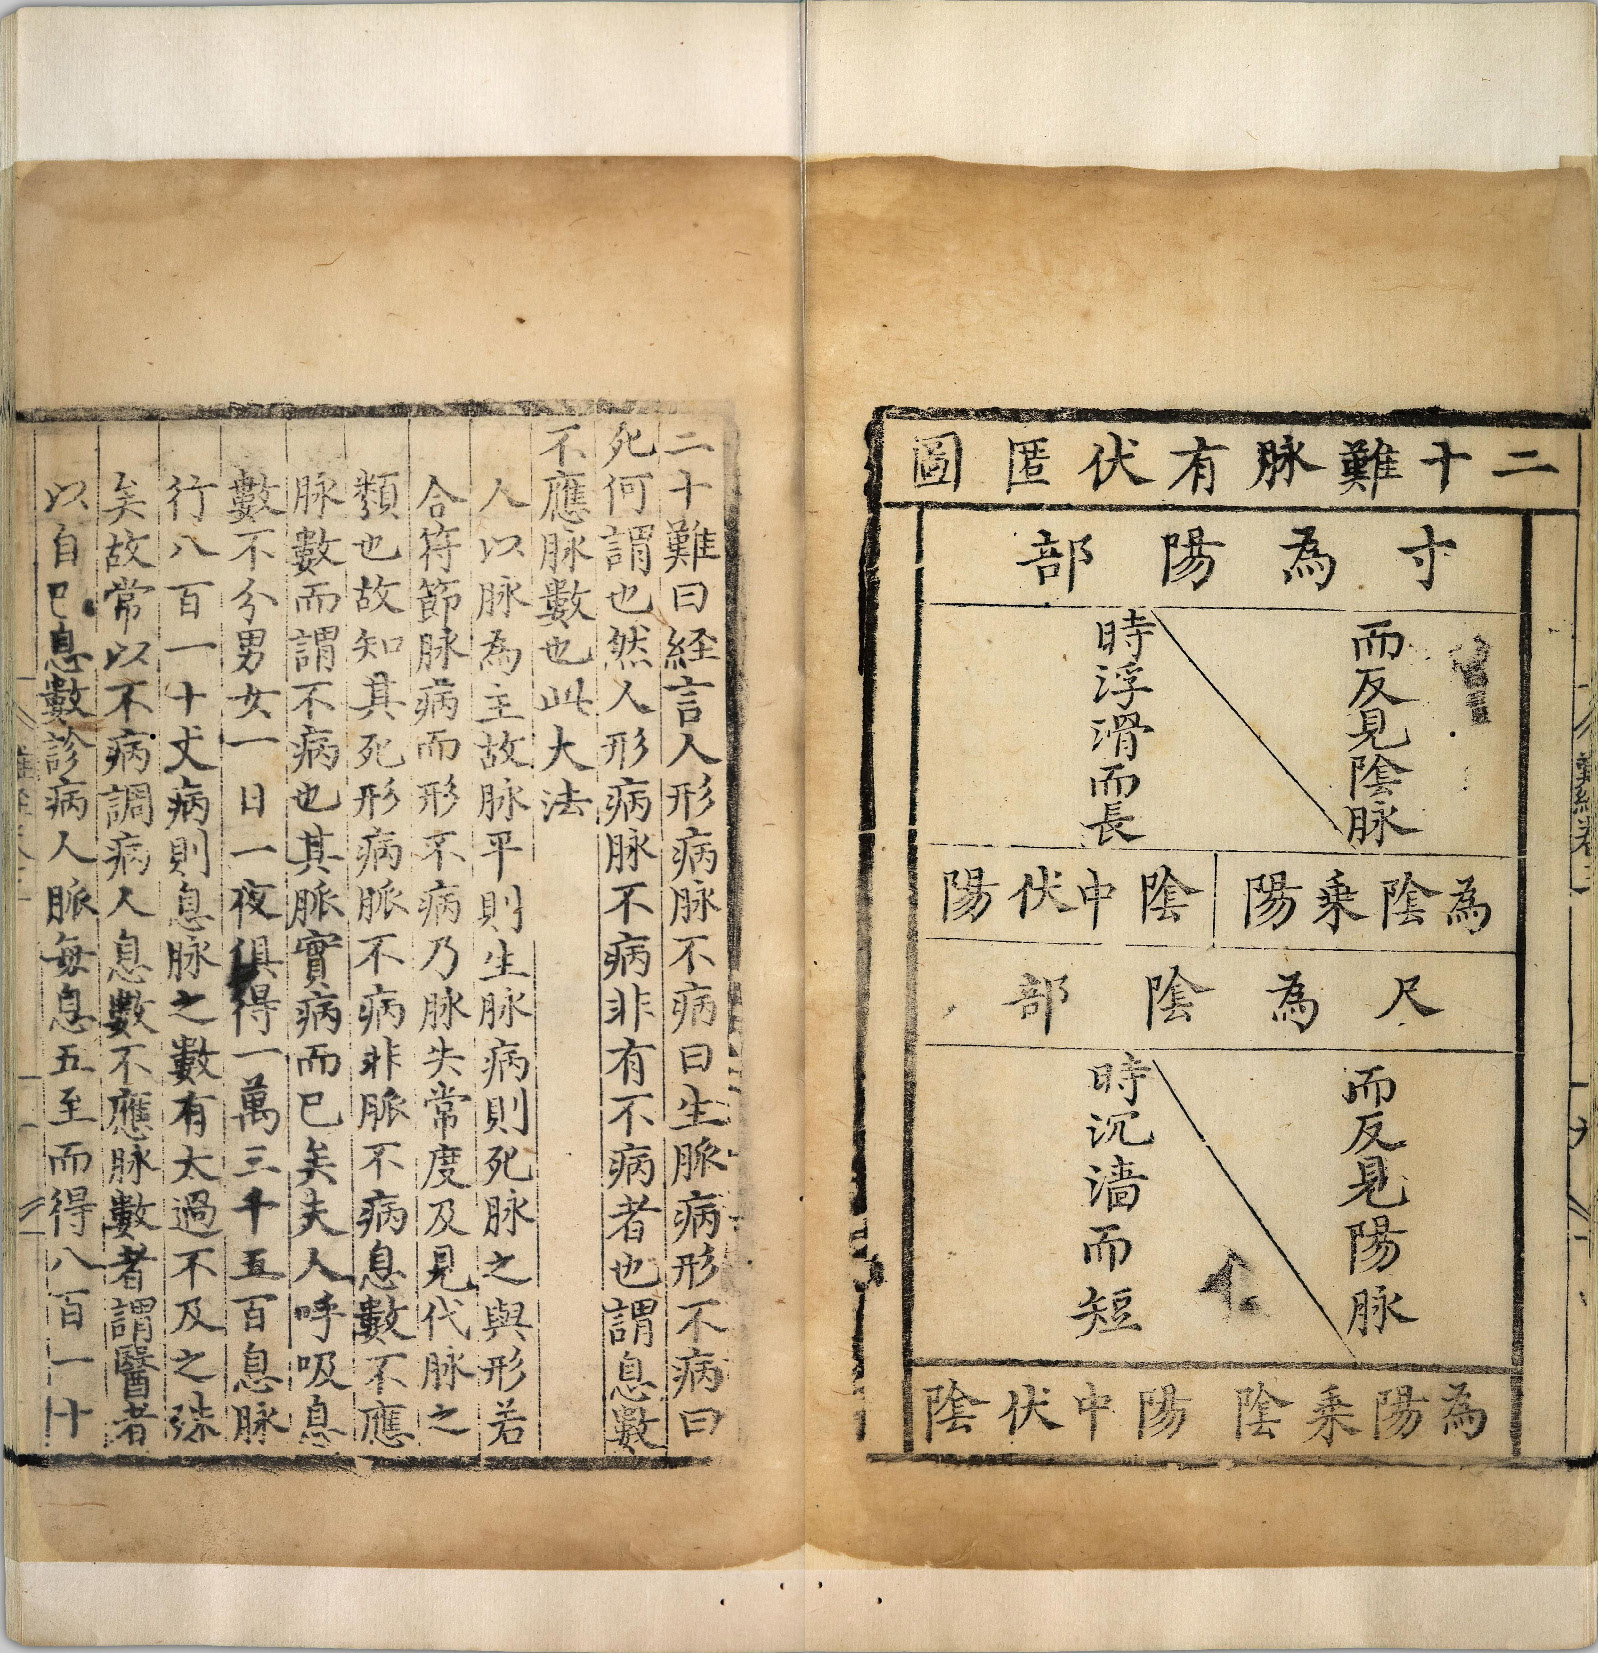 二十難脉有伏匿圖
寸為陽部
而反見陰脉
時浮滑而長
為陰乘陽
陰中伏陽
尺為陰部
而反見陽脉
時沉濇而短
為陽乘陰
陽中伏陰
二十難曰經言人形病脉不病曰生脈病形不病曰
死何謂也然人形病脉不病非有不病者也謂息數
不應脉數也此大法
人以脉為主故脉平則生脉病則死脉之與形若
合符節脉病而形不病乃脉失常度及見代脉之
類也故知其死形病脈不病非脈不病息數不應
脉數而謂不病也其脈實病而已矣夫人呼吸息
數不分男女一日一夜俱得一萬三千五百息脉
行八百一十丈病則息脉之數有太過不及之殊
矣故常以不病調病人息數不應脉數者謂醫者
以自已息數診病人脈每息五至而得八百一十